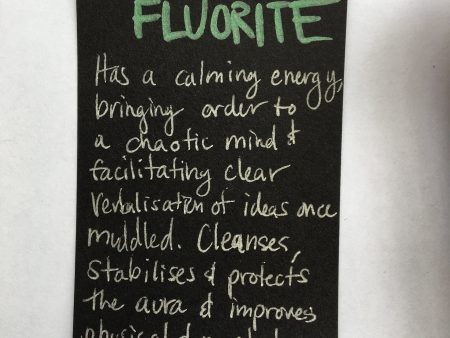 FLUORITE
Has a calming energy,
bringing order to
a chaotic mind &
facilitating clear
verbalisation of ideas once
muddled. Cleanses,
stabilises & protects
the aura & improves
physical